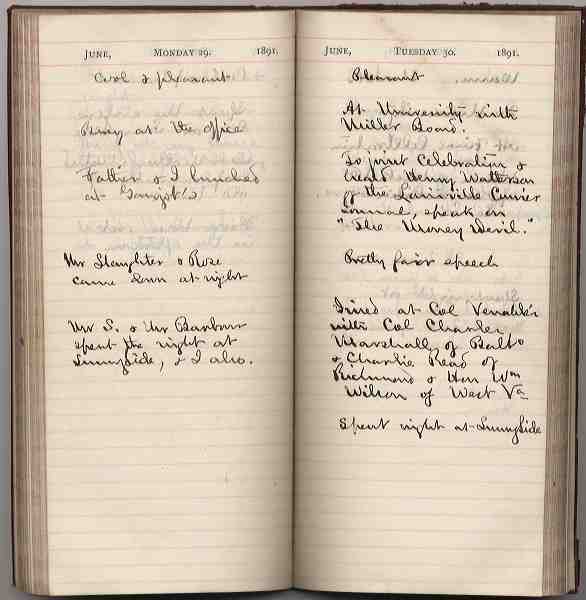 JUNE, MONDAY 29. 1891.
Cool & pleasant
Busy at the office
Father & I lunched
at
Mr Slaughter & Rose
came down at night
Mr S. & Mr Barbour
spent the night at
Sunnyside, & I also.
JUNE, TUESDAY 30. 1891.
Pleasant
At University with
Miller Board.
To joint Celebration &
heard Henry Watterson
of the Louisville Courier
Journal, speak on
"The Money Devil."
Pretty fair speech
Dined at Col Venable's
with Col Charles
Marshall of Balto
& Charlie Read of
Richmond & Hon Wm
Wilson of West Va
Spent night at Sunnyside